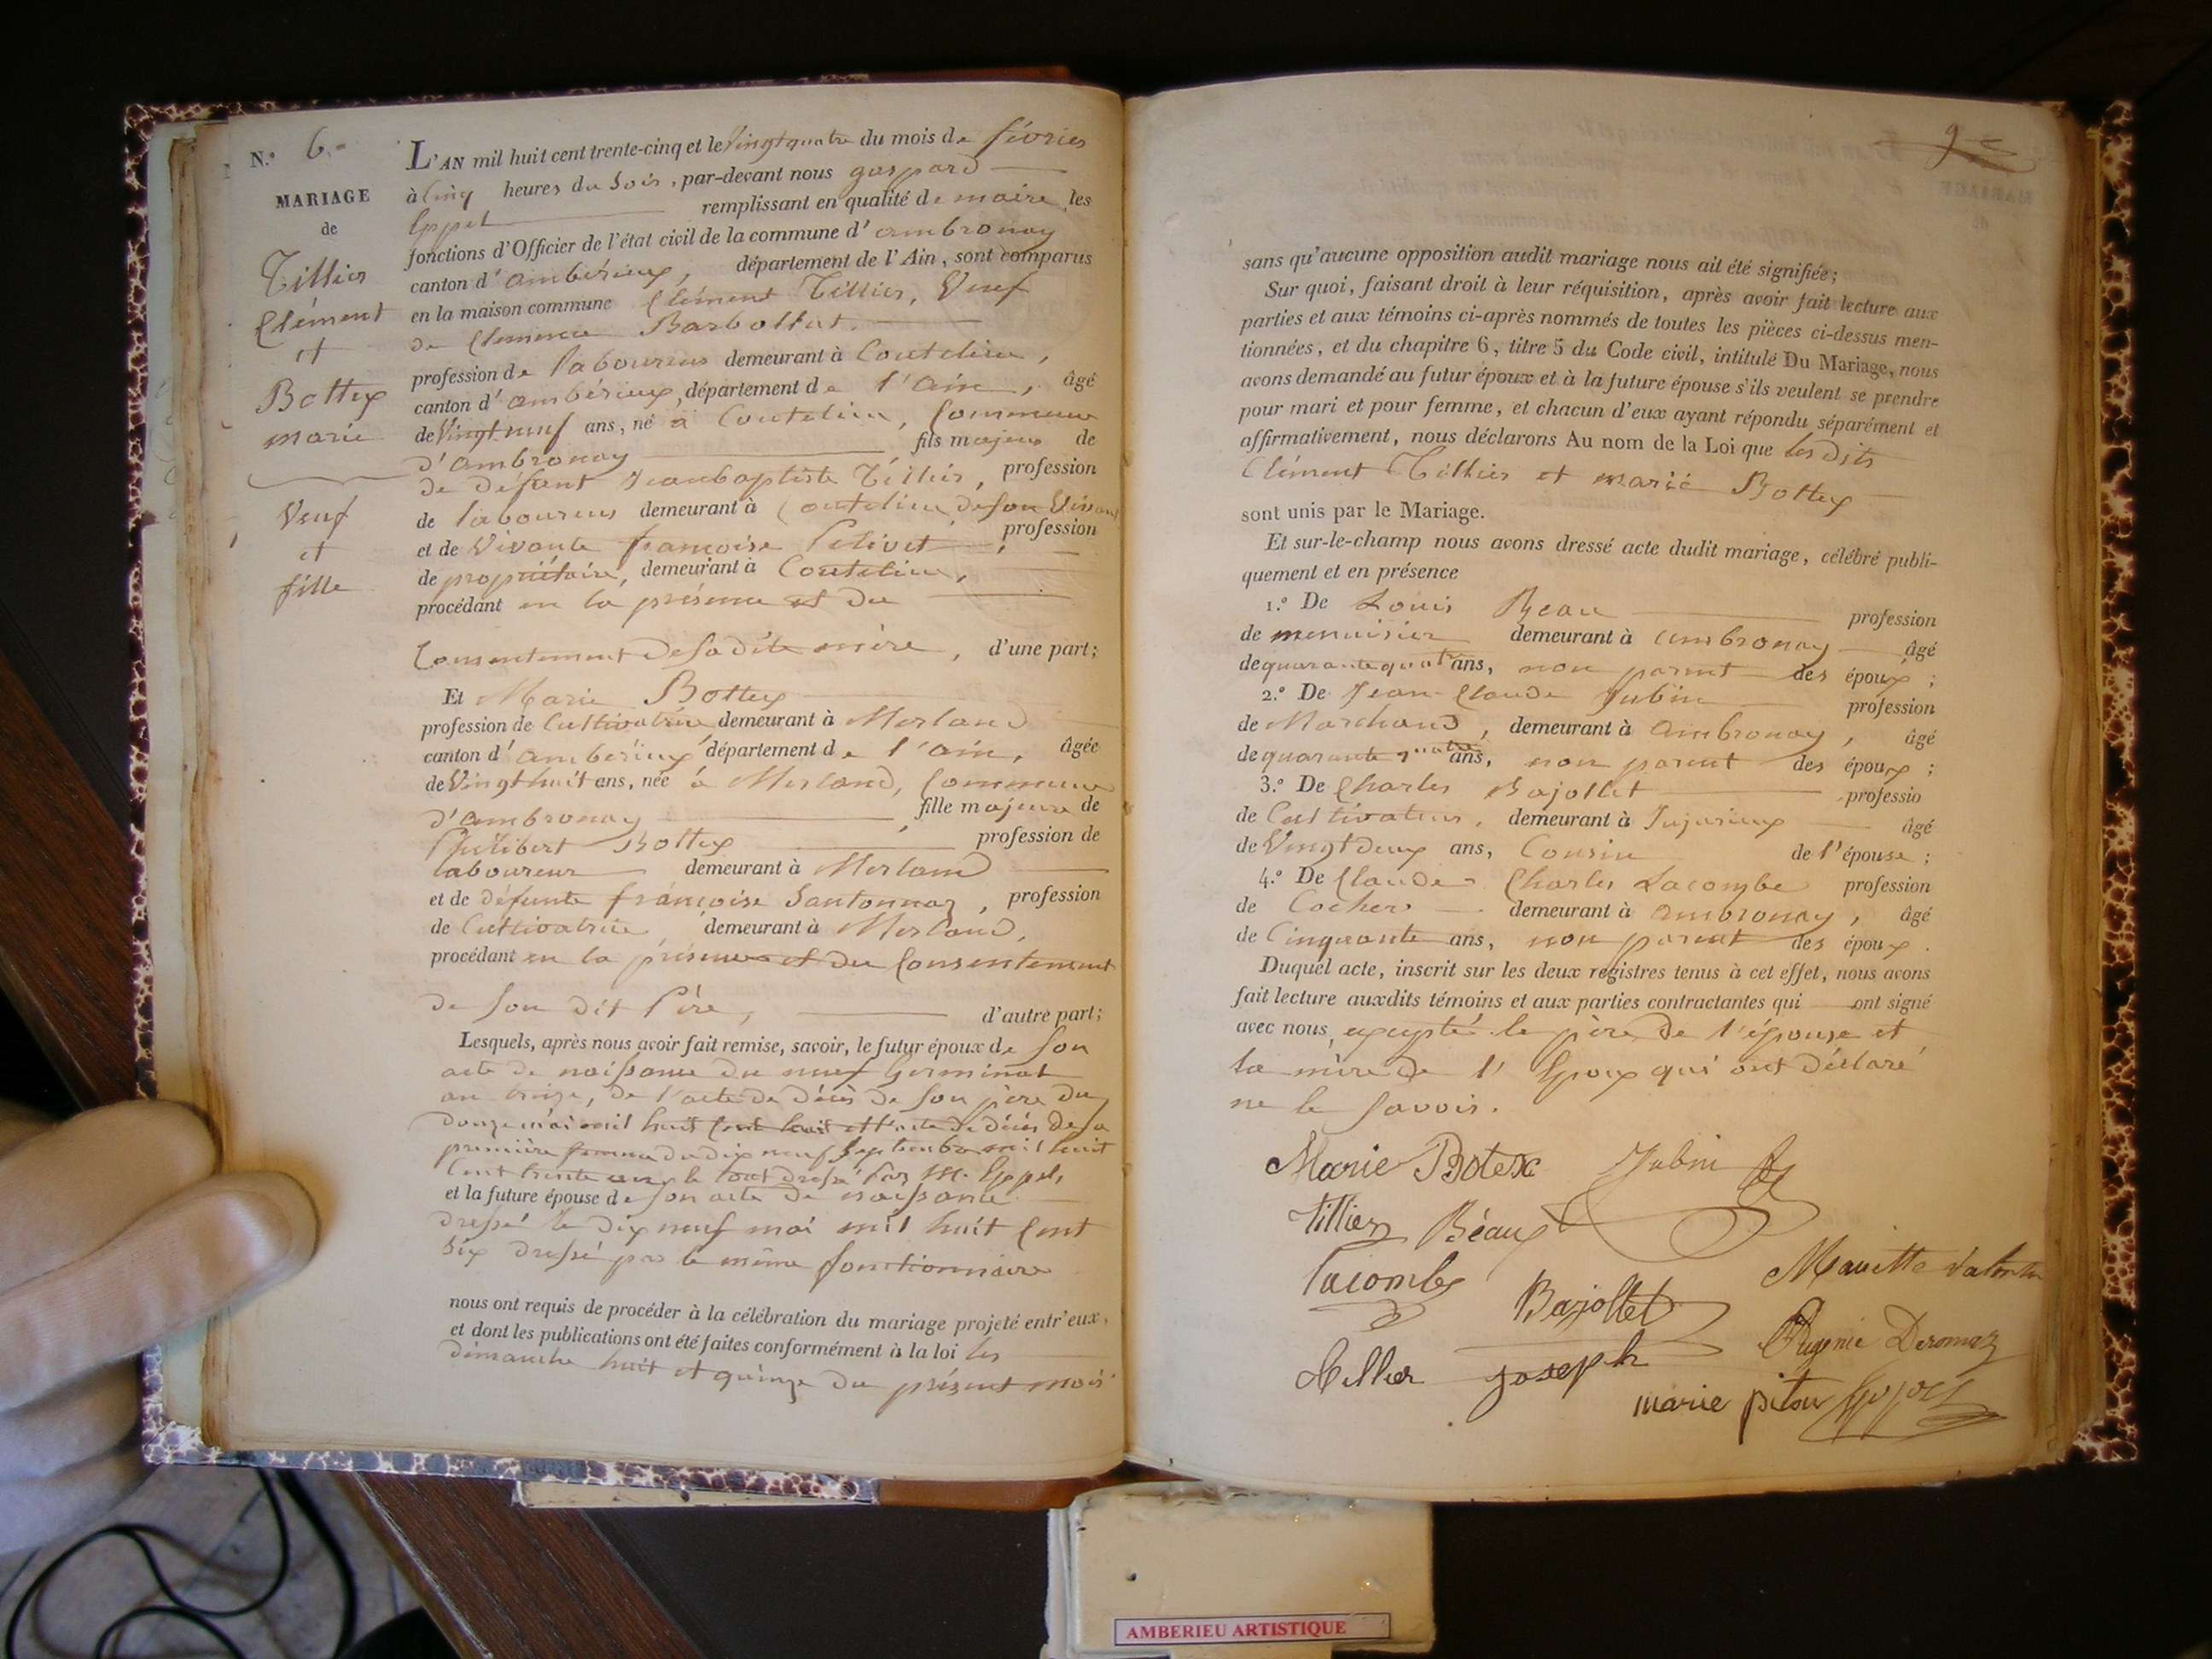 N.° 6.
MARIAGE
de
Tillier
Clément
et
Bottex
marie
Veuf
et
fille
L'AN mil huit cent trente-cinq et le Vingt quatre du mois de février
à Cinq heures du Soir, par-devant nous gaspard
Eppel remplissant en qualité de maire les
fonctions d'Officier de l'état civil de la commune d'ambronay
canton d'ambérieux, département de l'Ain, sont comparus
en la maison commune Clément Tillier, Veuf
de Clemence Barbollat.
profession de laboureur demeurant à Coutelieu,
canton d'ambérieux, département de l'ain, âgé
de Vingt neuf ans, né à Coutelieu, Commune
d'ambronay, fils majeur de
de défunt Jean baptiste Tillier, profession
de laboureur demeurant à Coutelieu de son Vivant
et de Vivante françoise Pelivet, profession
de propriétaire, demeurant à Coutelieu,
procédant en la présence et du
Consentement de sa dite mère, d'une part;
Et Marie Bottex
profession de Cultivatrice demeurant à Merland
canton d'ambérieux département de l'ain, âgée
de Vingt huit ans, née à Merland, Commune
d'ambronay, fille majeure de
Philibert Bottex profession de
laboureur demeurant à Merland
et de défunte françoise Santonnaz, profession
de Cultivatrice demeurant à Merland,
procédant en la présence et du Consentement
de Son dit Père, d'autre part;
Lesquels, après nous avoir fait remise, savoir, le futur époux de son
acte de naissance du neuf Germinal
an treize, de l'acte de décès de son père du
douze mai mil huit Cent huit et l'acte de décès de sa
première femme du dix neuf Septembre mil huit
Cent trente un, le tout dressé par M. Eppel,
et la future épouse de son acte de naissance
dressé le dix neuf mai mil huit Cent
Six dressé par le même fonctionnaire
nous ont requis de procéder à la célébration du mariage projeté entr'eux,
et dont les publications ont été faites conformément à la loi les
dimanche huit et quinze du présent mois
9
sans qu'aucune opposition audit mariage nous ait été signifiée;
Sur quoi, faisant droit à leur réquisition, après avoir fait lecture aux
parties et aux témoins ci-après nommés de toutes les pièces ci-dessus men-
tionnées, et du chapitre 6, titre 5 du Code civil, intitulé Du Mariage, nous
avons demandé au futur époux et à la future épouse s'ils veulent se prendre
pour mari et pour femme, et chacun d'eux ayant répondu séparément et
affirmativement, nous déclarons Au nom de la Loi que les dits
Clément Tillier et marie Bottex
sont unis par le Mariage.
Et sur-le-champ nous avons dressé acte dudit mariage, célébré publi-
quement et en présence
1.° De Louis Beau profession
de menuisier demeurant à ambronay âgé
de quarante quatre ans, non parent des époux;
2.° De Jean-Claude Jubin profession
de Marchand, demeurant à Ambronay, âgé
de quarante quatre ans, non parent des époux;
3.° De Charles Bajollet professio
de Cultivateur, demeurant à Jujurieux âgé
de Vingt deux ans, Cousin de l'épouse;
4.° De Claude Charles Lacombe profession
de Cocher demeurant à ambronay, âgé
de Cinquante ans, non parent des époux.
Duquel acte, inscrit sur les deux registres tenus à cet effet, nous avons
fait lecture auxdits témoins et aux parties contractantes qui ont signé
avec nous, excepté le père de l'épouse et
la mère de l'Epoux qui ont déclaré
ne le Savoir.
Marie Botex Jubin
tillier Béaux
lacombe Bajollet Mariette
tillier joseph Eugenie Deromaz
marie pitou Eppel
AMBERIEU ARTISTIQUE